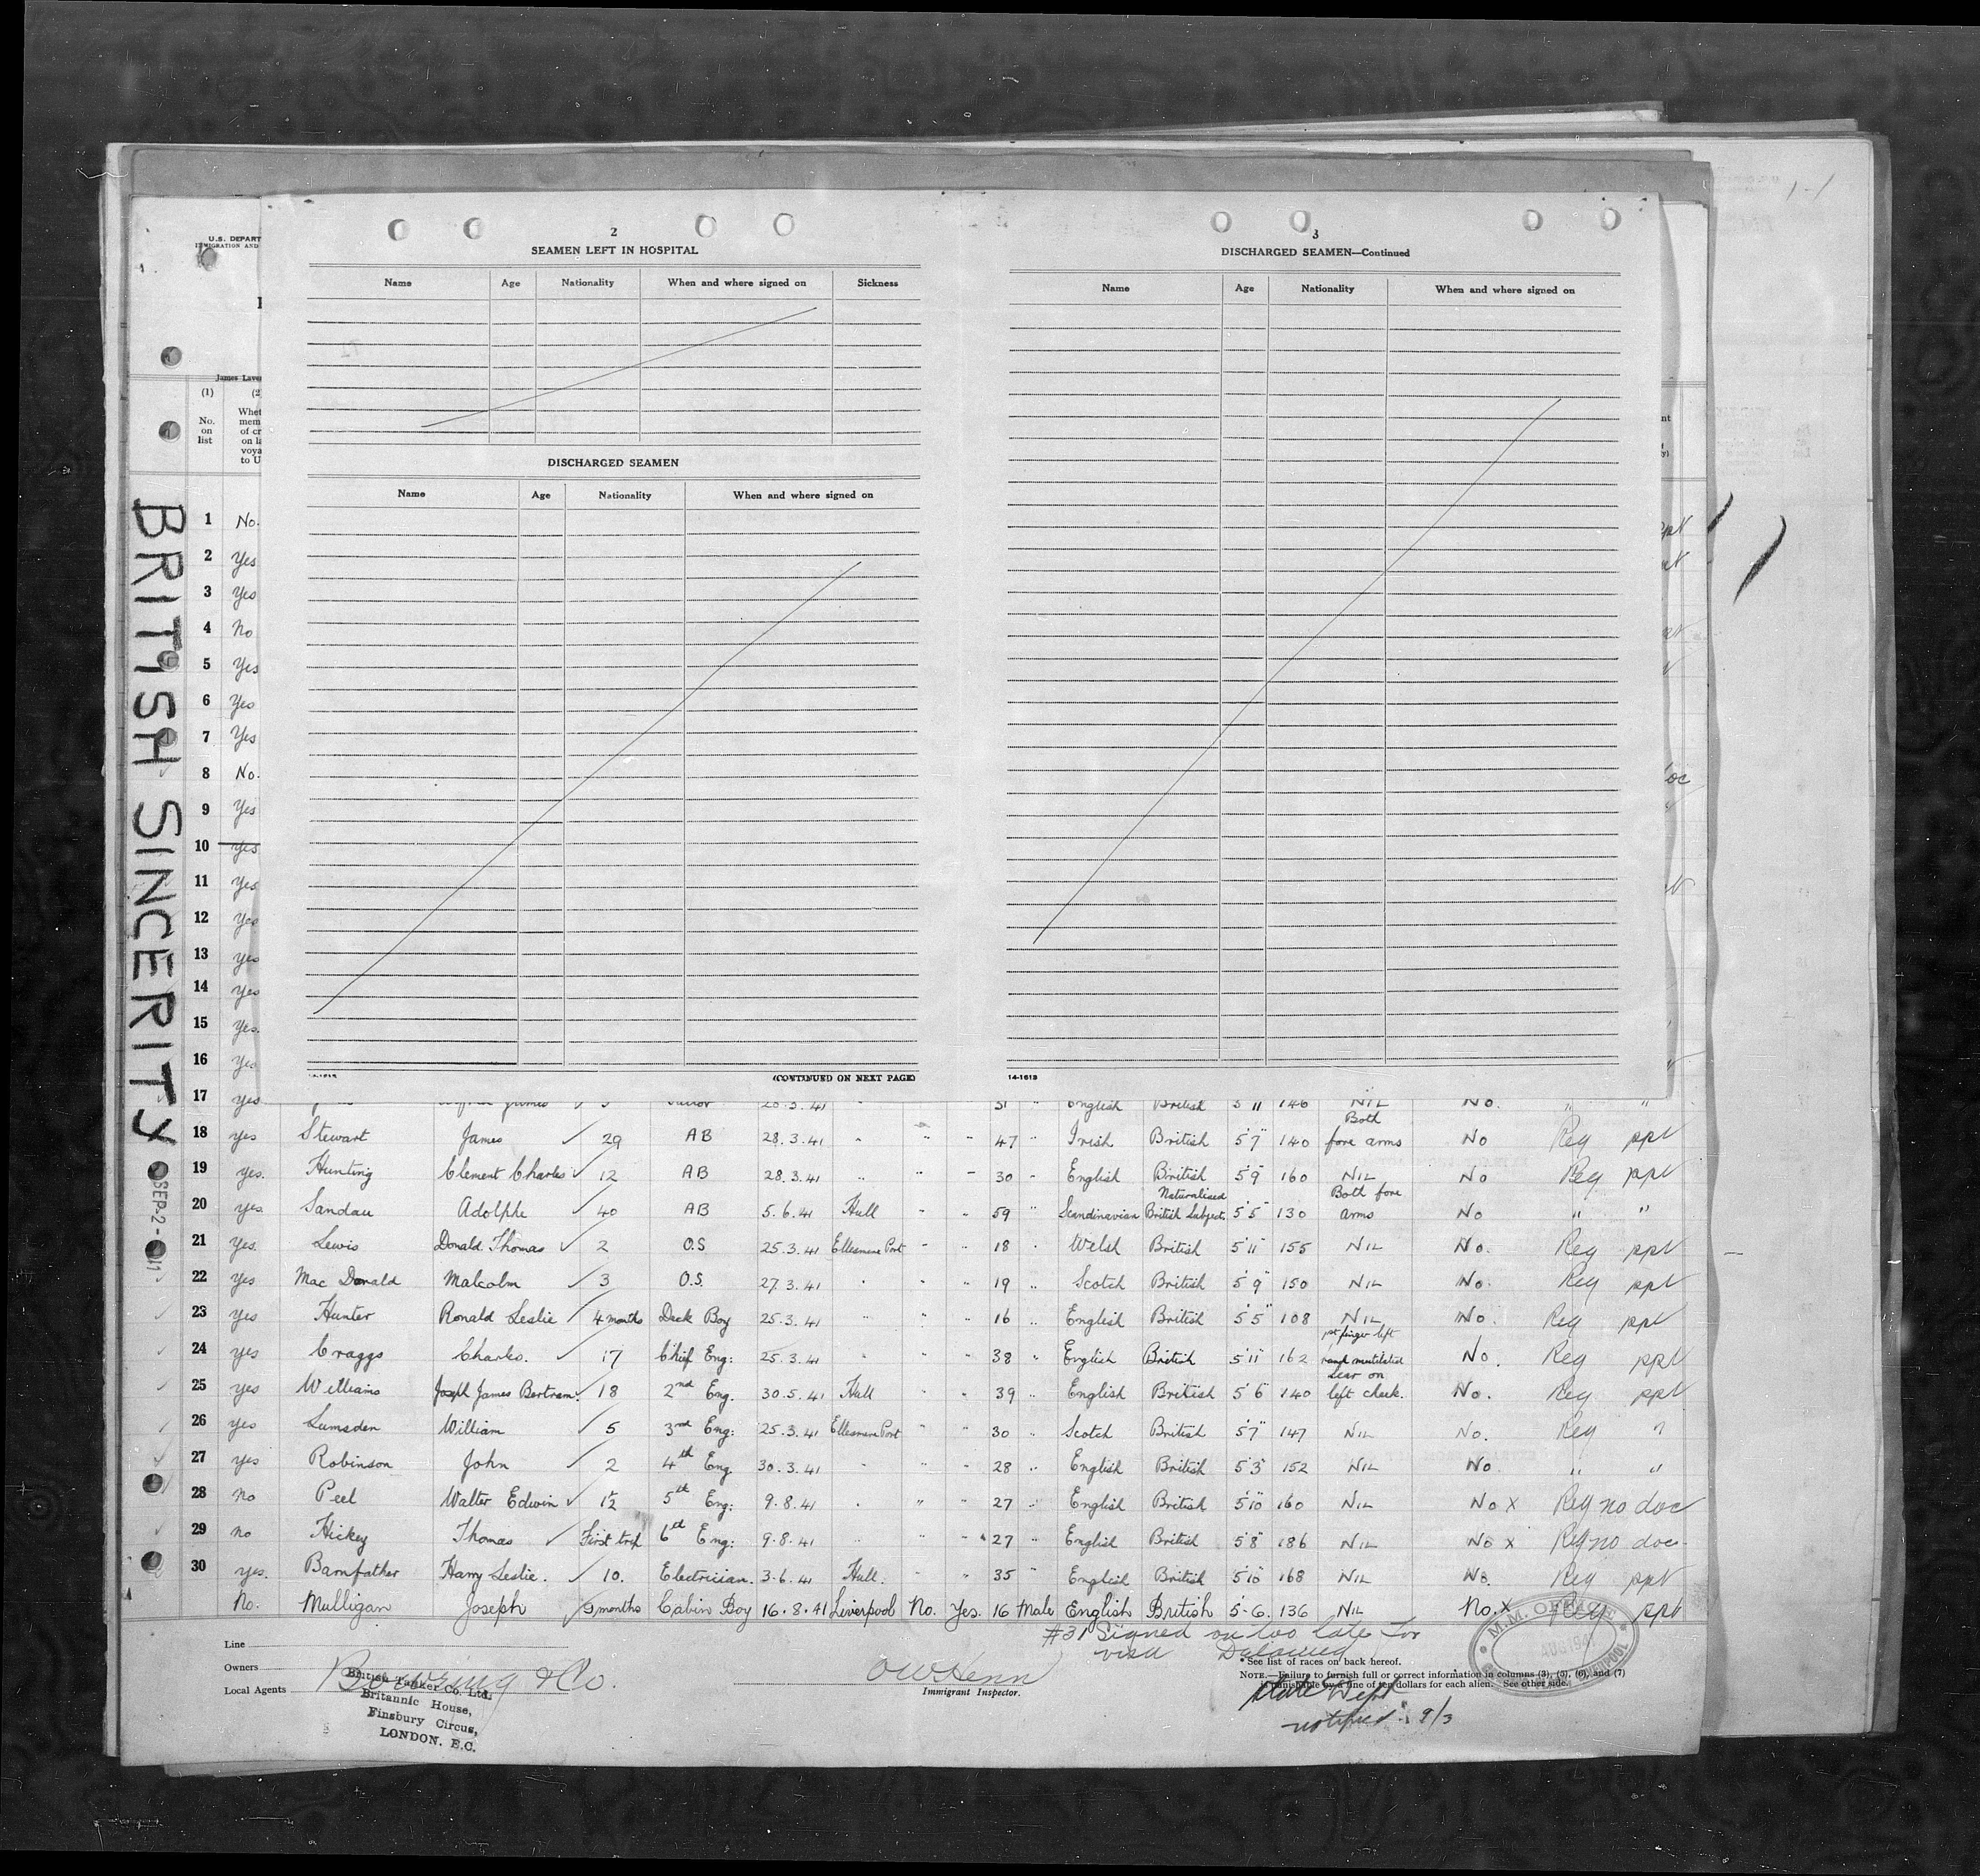 U.S. DEPART
IMMIGRATION AND
James Laver
(1)
No.
on
list
(2
Whet
mem
of cr
on la
voya
to U
BRITISH SINCERITY
SEP-2-
2
SEAMEN LEFT IN HOSPITAL
Name Age Nationality When and where signed on Sickness
DISCHARGED SEAMEN
Name Age Nationality When and where signed on
(CONTINUED ON NEXT PAGE)
3
DISCHARGED SEAMEN—Continued
Name Age Nationality When and where signed on
14-1613
1 No.
2 Yes
3 Yes
4 No
5 Yes
6 Yes
7 Yes
8 No.
9 Yes
10 Yes
11 Yes
12 Yes
13 Yes
14 Yes
15 Yes.
16 Yes
17 yes 28.3.41 31 " English British 5'11 146 NIL No. " "
18 yes Stewart James ✓ 29 AB 28.3.41 " " " 47 " Irish British 5'7" 140 Both fore arms No Reg ppt
19 yes. Hunting Clement Charles ✓ 12 AB 28.3.41 " " " 30 " English British 5'9" 160 NIL No Reg ppt
20 yes Sandau Adolphe ✓ 40 AB 5.6.41 Hull " " 59 " Scandinavian Naturalised British Subject 5'5" 130 Both fore arms No " "
21 Yes. Lewis Donald Thomas ✓ 2 O.S 25.3.41 Ellesmere Port " " 18 " Welsh British 5'11" 155 NIL No. Reg ppt
22 yes Mac Donald Malcolm ✓ 3 O.S. 27.3.41 " " " 19 " Scotch British 5'9" 150 NIL No. Reg ppt
23 yes Hunter Ronald Leslie ✓ 4 months Deck Boy 25.3.41 " " " 16 " English British 5'5" 108 NIL No. Reg ppt
24 yes Craggs Charles. ✓ 17 Chief Eng: 25.3.41 " " " 38 " English British 5'11" 162 1st finger left hand mutilated No. Reg ppt
25 yes Williams Joseph James Bertram ✓ 18 2nd Eng. 30.5.41 Hull " " 39 " English British 5'6" 140 Scar on left cheek. No. Reg ppt
26 yes Lumsden William ✓ 5 3rd Eng: 25.3.41 Ellesmere Port " " 30 " Scotch British 5'7" 147 NIL No. Reg "
27 yes Robinson John ✓ 2 4th Eng. 30.3.41 " " " 28 " English British 5'3" 152 NIL No " "
28 no Peel Walter Edwin ✓ 1/2 5th Eng: 9.8.41 " " " 27 " English British 5'10" 160 NIL No X Reg no doc
29 no Hickey Thomas ✓ First trip 6th Eng: 9.8.41 " " " 27 " English British 5'8" 186 NIL No X Reg no doc.
30 yes. Barnfather Harry Leslie. ✓ 10. Electrician. 3.6.41 Hull. " " 35 " English British 5'10" 168 NIL No. Reg ppt
No. Mulligan Joseph ✓ 5 months Cabin Boy 16.8.41 Liverpool No. Yes. 16 Male English British 5-6. 136 NIL No. X Reg ppt
#31 Signed on too late for
visa
Line
Owners
Local Agents
Bowring & Co.
British Tanker Co. Ltd.
Britannic House,
Finsbury Circus,
LONDON. E.C.
Immigrant Inspector.
* See list of races on back hereof.
NOTE.—Failure to furnish full or correct information in columns (3), (5), (6), and (7)
is punishable by a fine of ten dollars for each alien. See other side.
State Dept
notified 9/3
M.M. OFFICE
AUG 1941
LIVERPOOL